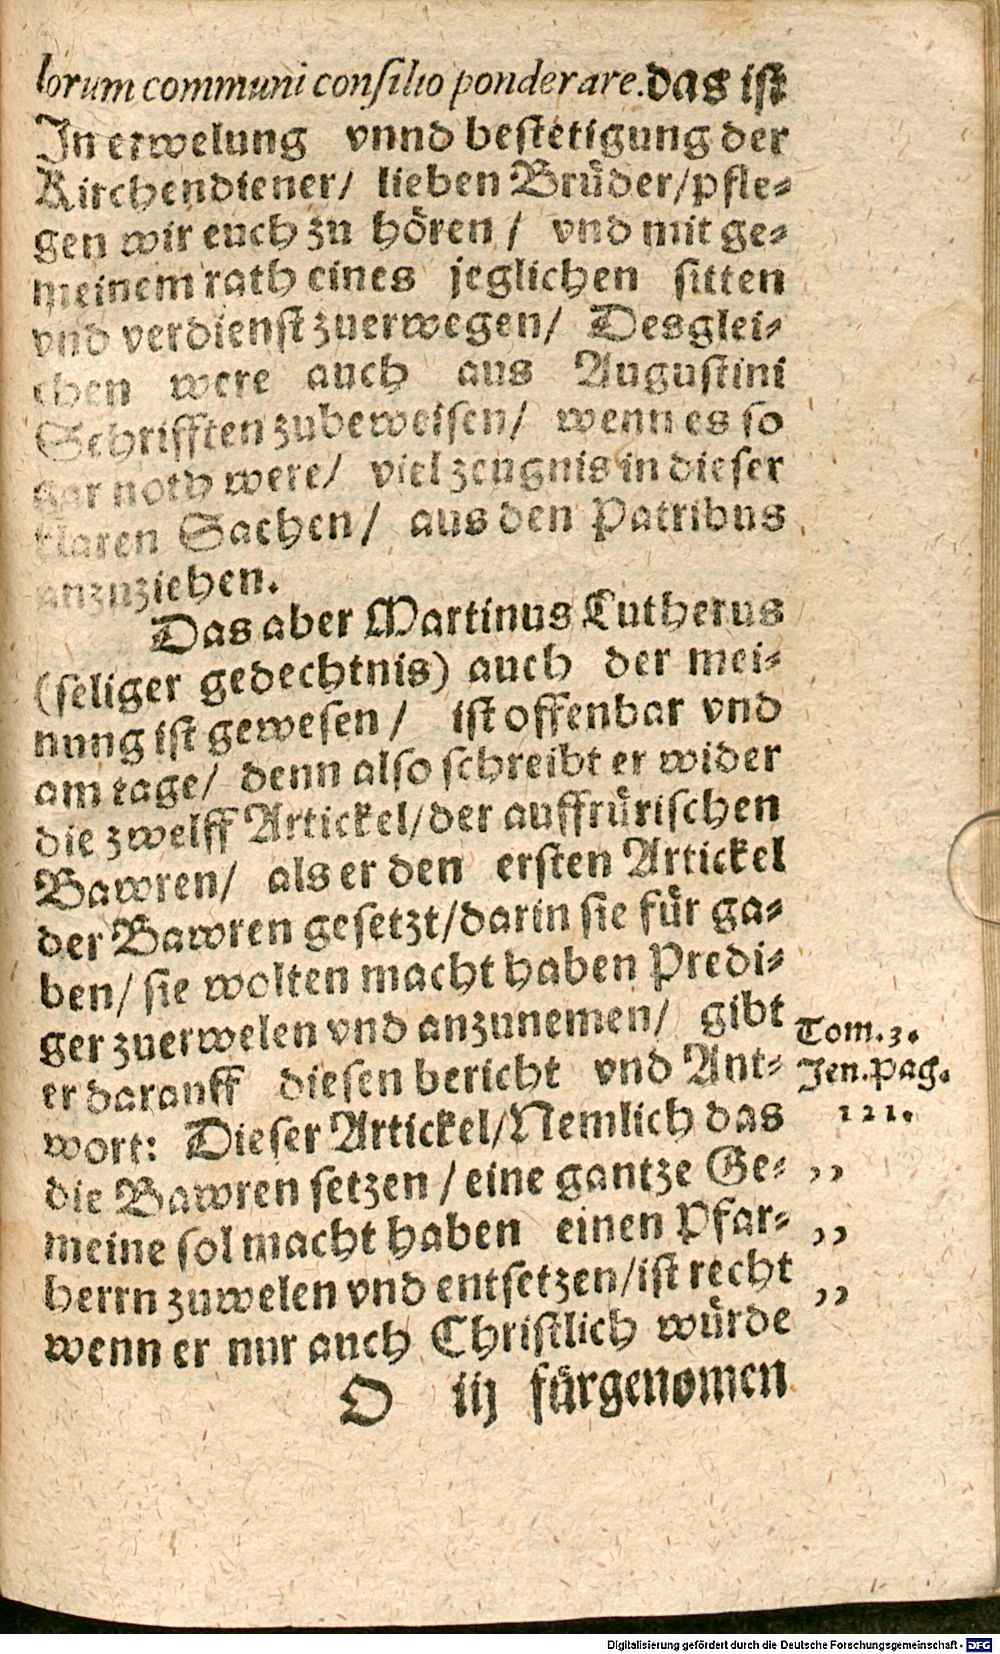 lorum communi consilio ponderare. das ist
In erwelung vnnd bestetigung der
Kirchendiener/ lieben Brüder/pfle-
gen wir euch zu hören / vnd mit ge-
meinem rath eines jeglichen sitten
vnd verdienst zuerwegen/ Desglei-
chen were auch aus Augustini
Schrifften zubeweisen/ wenn es so
gar noth were/ viel zeugnis in dieser
klaren Sachen/ aus den Patribus
anzuziehen.
Das aber Martinus Lutherus
(seliger gedechtnis) auch der mei-
nung ist gewesen / ist offenbar vnd
am tage/ denn also schreibt er wider
die zwelff Artickel/der auffrürischen
Bawren/ als er den ersten Artickel
der Bawren gesetzt/darin sie für ga-
ben/ sie wolten macht haben Predi-
ger zuerwelen vnd anzunemen/ gibt
er darauff diesen bericht vnd Ant-
wort: Dieser Artickel/Nemlich das
die Bawren setzen / eine gantze Ge-
meine sol macht haben einen Pfar-
herrn zuwelen vnd entsetzen/ist recht
wenn er nur auch Christlich würde
O iij fürgenomen
Tom. 3.
Jen. pag.
121.
,,
,,
,,
Digitalisierung gefördert durch die Deutsche Forschungsgemeinschaft - DFG